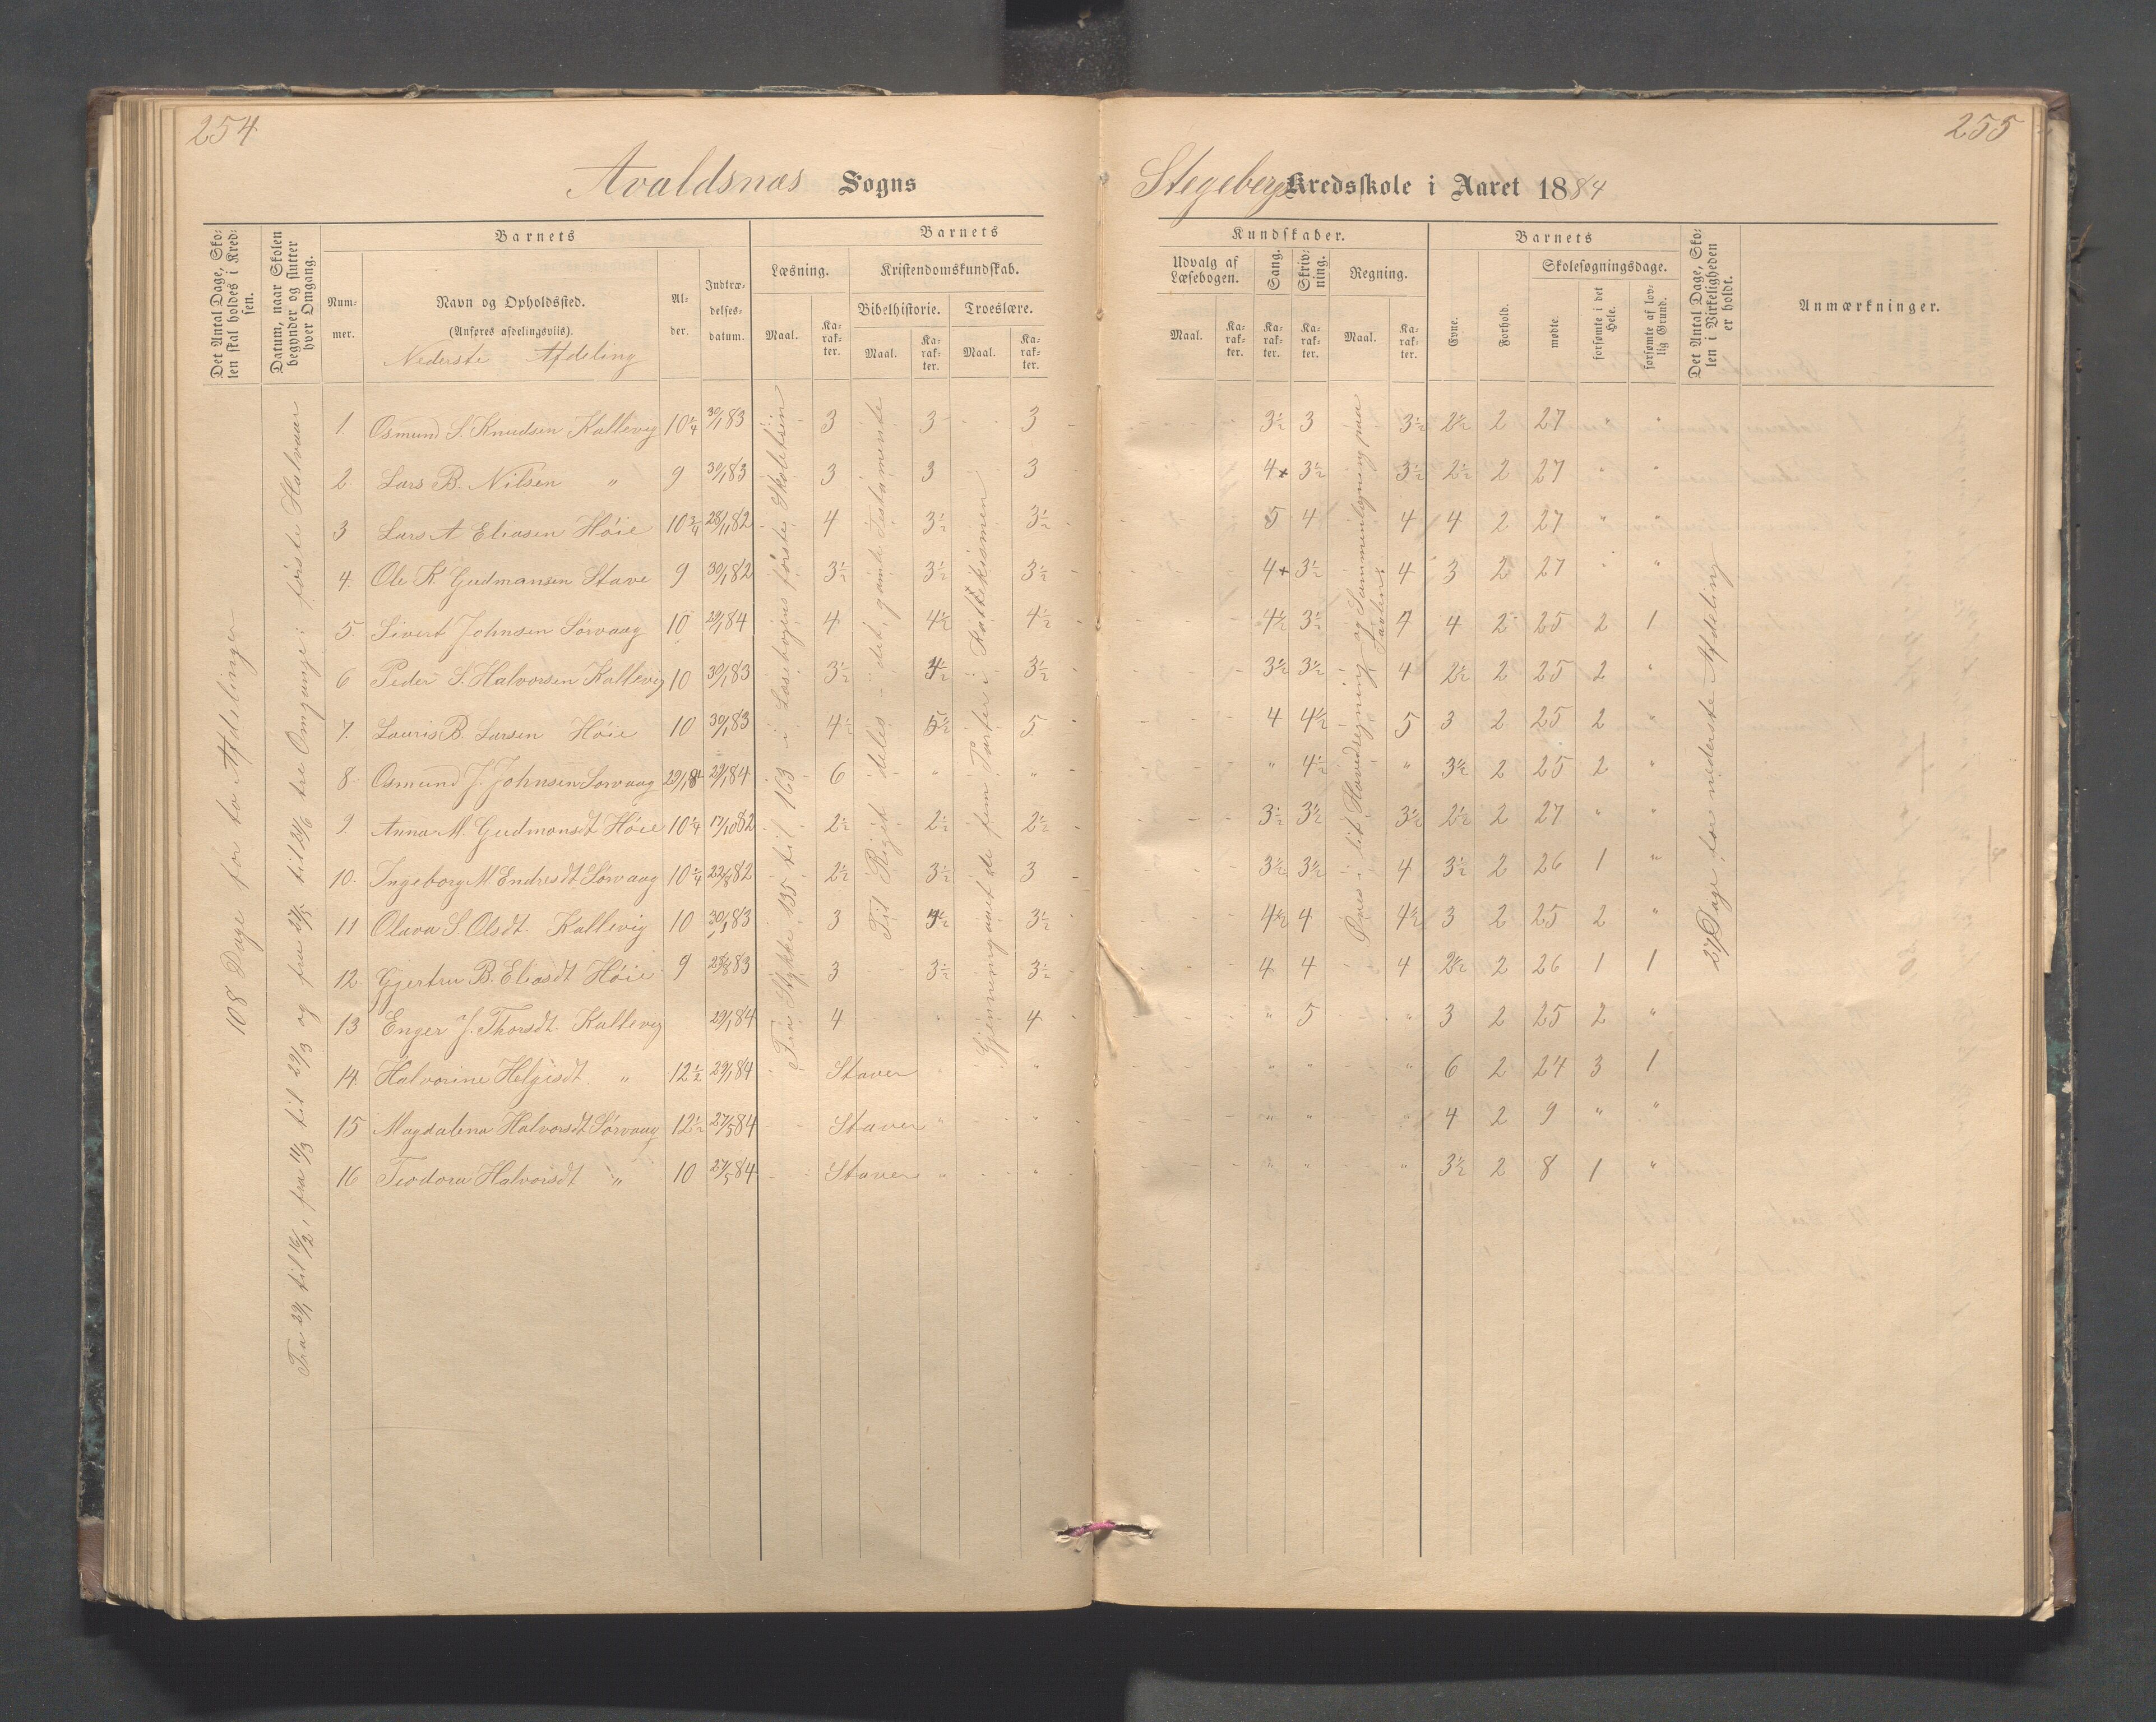 254
255
Avaldsnæs Sogns
Stegebergs Kredsskole i Aaret 1884
Det Antal Dage, Skolen skal holdes i Kredsen.
Datum, naar Skolen begynder og slutter hver Omgang.
Barnets
Nummer.
Navn og Opholdssted.
(Anføres afdelingsviis).
Nederste Afdeling
Alder.
Indtrædelsesdatum.
Barnets
Læsning.
Maal.
Karakter.
Kristendomskundskab.
Bibelhistorie.
Maal.
Karakter.
Troeslære.
Maal.
Karakter.
Kundskaber.
Udvalg af Læsebogen.
Maal.
Karakter.
Sang.
Karakter.
Skrivning.
Karakter.
Regning.
Maal.
Karakter.
Barnets
Evne.
Forhold.
Skolesøgningsdage.
mødte.
forsømte i det Hele.
forsømte af lovlig Grund.
Det Antal Dage, Skolen i Virkeligheden er holdt.
Anmærkninger.
108 Dage for to Afdelinger
Fra 29/1 til 16/2, fra 11/3 til 29/3 og fra 27/5 til 21/6 tre Omgange i første Halvaar
Fra Stykke 135 til 163 i Læsebogens første Skoletrin
Til Riget deles - det gamle Testamente
Gjennemgaaet de fem Parter i Katekismen
Øves i lit Hovedregning og Sammenlægning paa Tavlen.
27 Dage for nederste Afdeling
1. Osmund S. Knudsen Kallevig 10 1/4 30/1 83 3 3 3 3½ 3 3½ 2½ 2 27 " "
2. Lars B. Nilsen " 9 30/1 83 3 3 3 4+ 3½ 3½ 2½ 2 27 " "
3 Lars A Eliasen Høie 10 3/4 28/11 82 4 3½ 3½ 5 4 4 4 2 27 " "
4. Ole K. Gudmansen Stave 9 30/1 82 3½ 3½ 3½ 4+ 3½ 4 3 2 27 " "
5. Sivert Johnsen Sørvaag 10 29/1 84 4 4½ 4½ 4½ 3½ 4 4 2 25 2 1
6 Peder S. Halvorsen Kallevig 10 30/1 83 3½ 4½ 3½ 3½ 3½ 4 2½ 2 25 2 "
7. Lauris B. Larsen Høie 10 30/1 83 4½ 5½ 5 4 4½ 5 3 2 25 2 "
8. Osmund J. Johnsen Sørvaag 29/1 84 29/1 84 6 " " " 4½ " 3½ 2 25 2 "
9 Anna M. Gudmansdt Høie 10 1/4 17/10 82 2½ 2½ 2½ 3½ 3½ 3½ 2½ 2 27 " "
10. Ingeborg M. Endresdt Sørvaag 10 1/4 22/8 82 2½ 3½ 3 3½ 3½ 4 3½ 2 26 1 "
11 Olava S. Olsdt. Kallevig 10 30/1 83 3 4½ 3½ 4½ 4 4½ 3 2 25 2 "
12. Gjertru B. Eliasdt Høie 9 28/8 83 3 3½ 3½ 4 4 4 2½ 2 26 1 1
13 Enger J. Thorsdt. Kallevig 29/1 84 4 " 4 " 5 " 3 2 25 2 "
14. Halvorine Helgisdt " 12½ 29/1 84 Staver " " " " " 6 2 24 3 1
15 Magdalena Halvorsdt Sørvaag 12½ 27/5 84 Staver " " " " " 4 2 9 " "
16 Teodora Halvorsdt " 10 27/5 84 Staver " " " " " 3½ 2 8 1 "